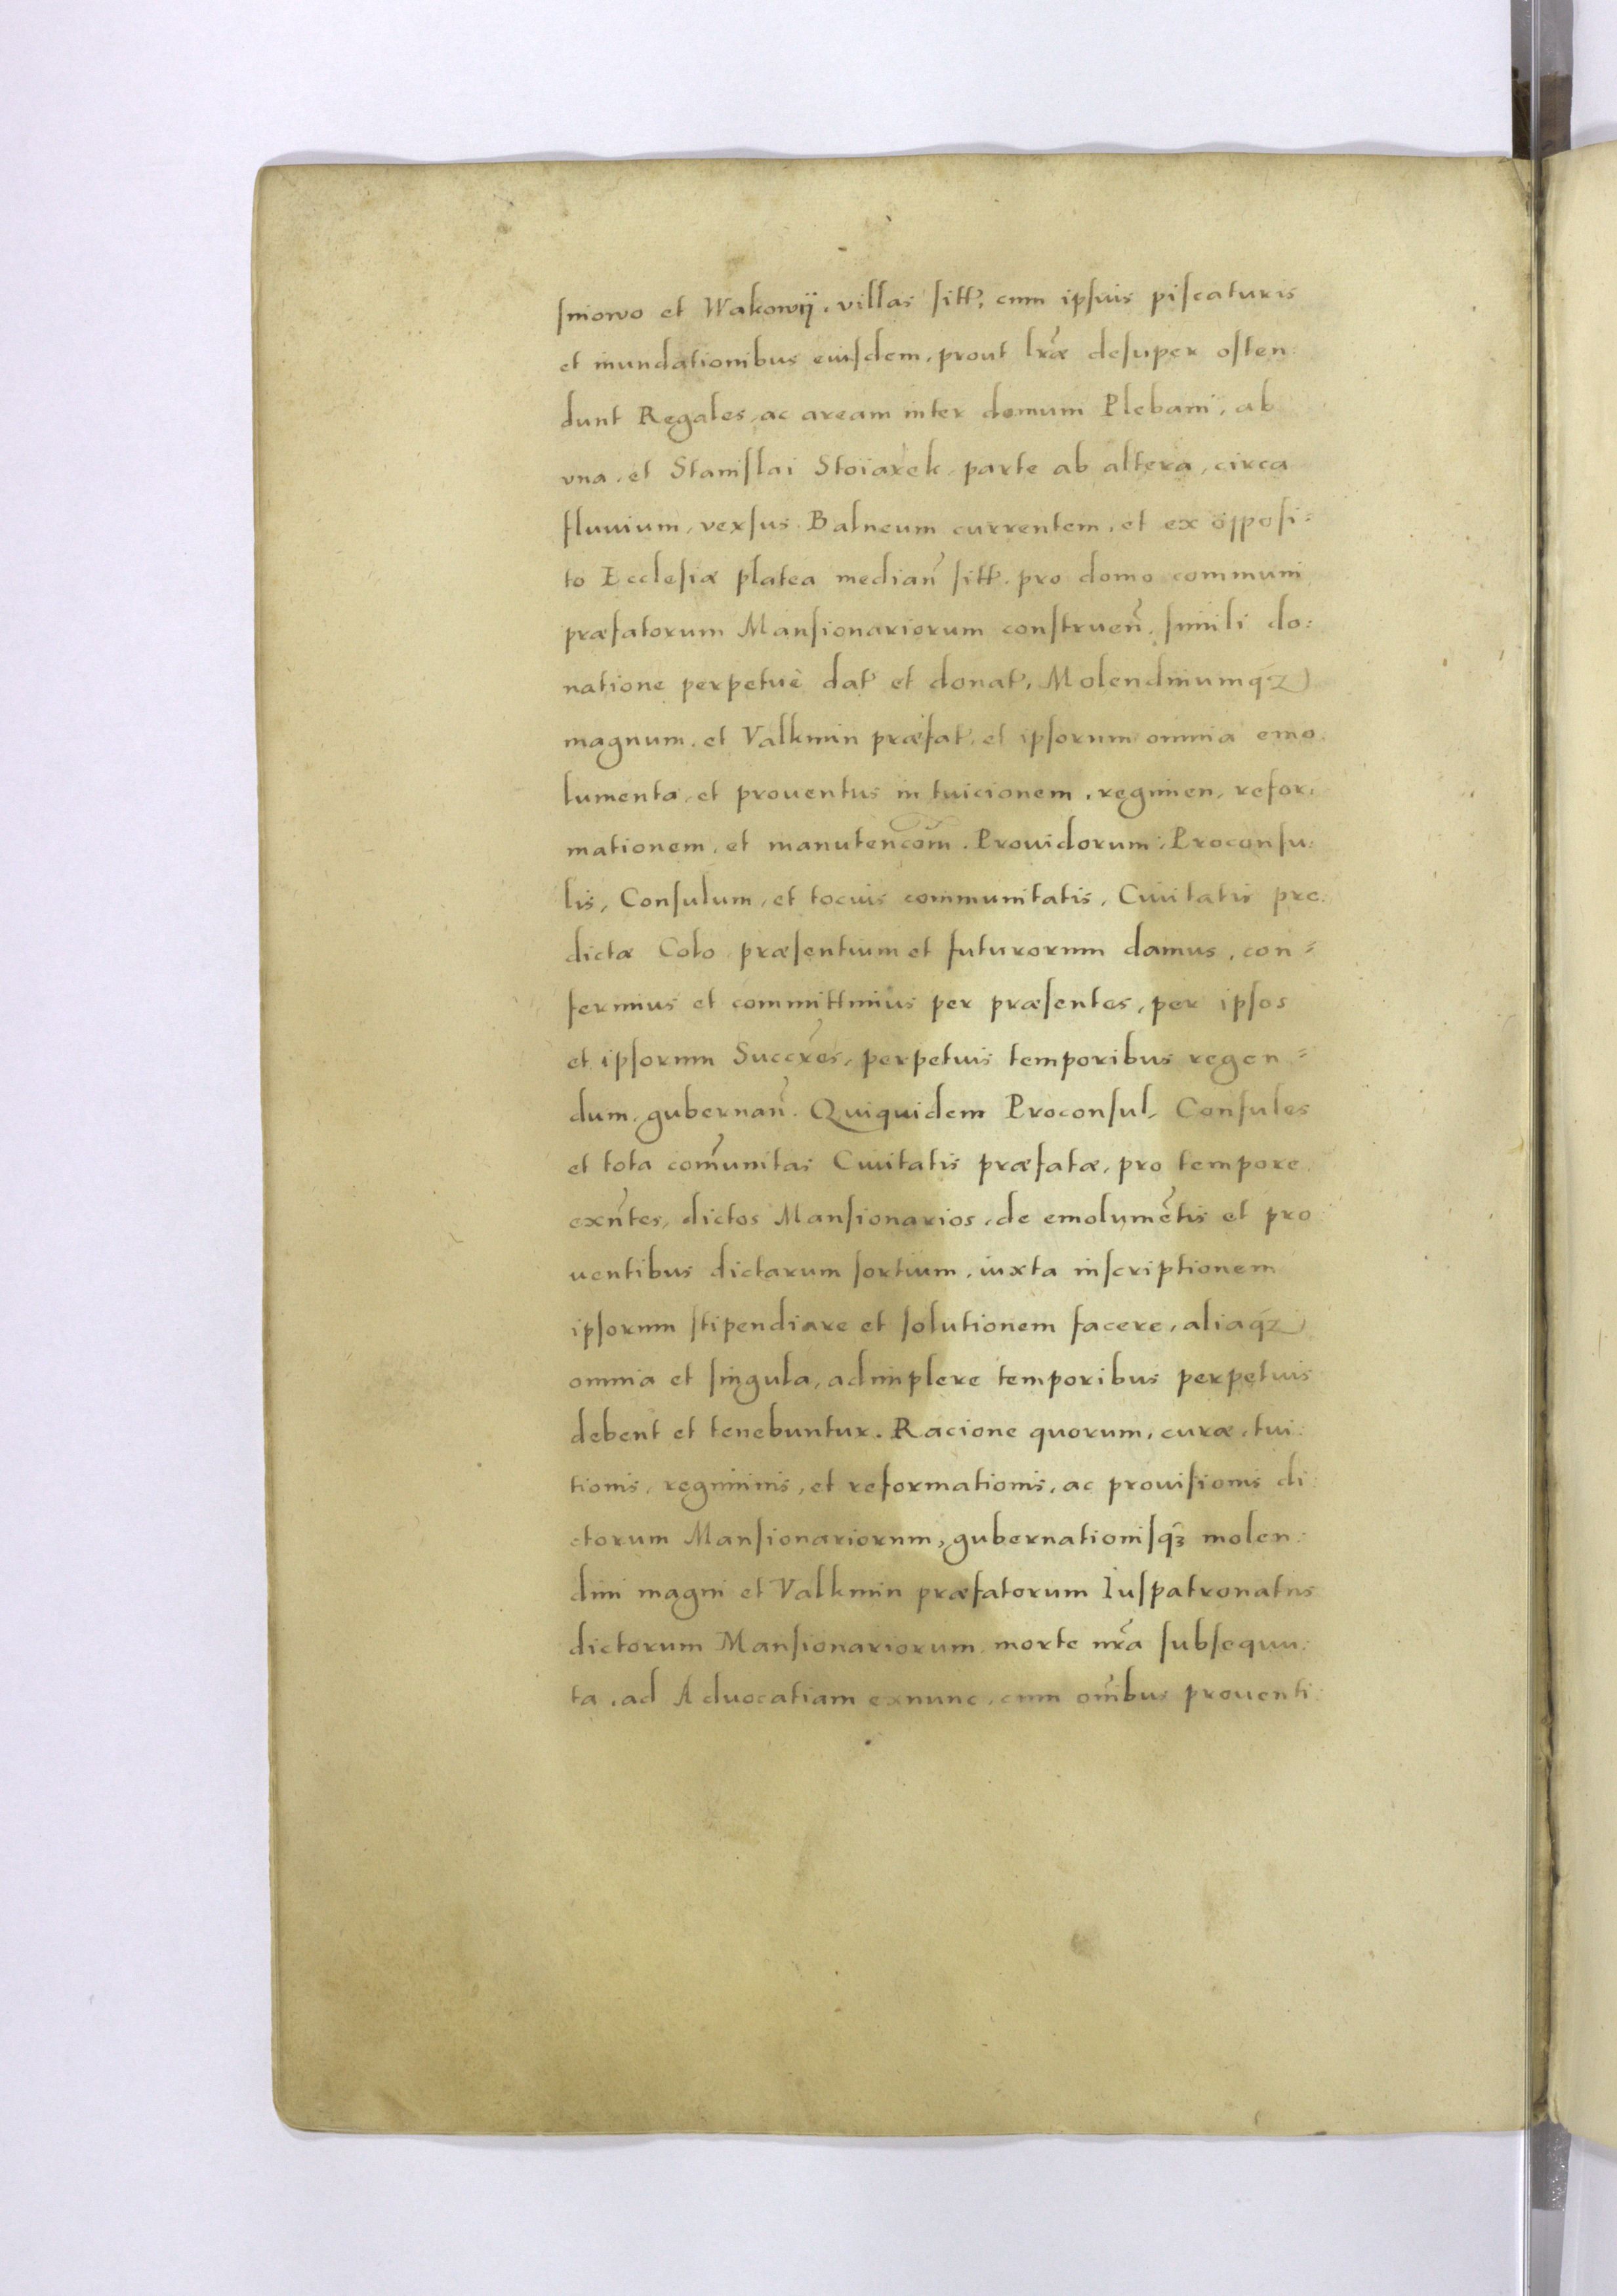 sniowo et Wakowÿ. villas sitt̃, cum ipsius piscaturis
et inundationibus eiusdem, prout lr̃æ desuper osten:
dunt Regales, ac aream inter domum Plebani, ab
vna, et Stanislai Stoiarek, parte ab altera, circa
fluuium, versus Balneum currentem, et ex opposi:
to Ecclesiæ platea median̄ sitt̃. pro domo communi
præfatorum Mansionariorum construen̄. simili do:
natione perpetuè dat̃ et donat̃, Molendinumqꝫ
magnum, et Valkmin præfat̃, et ipsorum omnia emo:
lumenta, et prouentus in tuicionem, regimen, refor:
mationem, et manutenc̃om. Prouidorum, Proconsu:
lis, Consulum, et tocius communitatis, Ciuitatis pre:
dictæ Colo præsentium et futurorum damus, con=
ferimus et committimus per præsentes, per ipsos
et ipsorum Succr̃es, perpetuis temporibus regen=
dum, gubernan̄. Quiquidem Proconsul, Consules
et tota com̄unitas Ciuitatis præfatæ, pro tempore
exn̄tes, dictos Mansionarios, de emolumētis et pro:
uentibus dictarum sortium, iuxta inscriptionem
ipsorum stipendiare et solutionem facere, aliaqꝫ
omnia et singula, adimplere temporibus perpetuis
debent et tenebuntur. Racione quorum, curæ, tui:
tionis, regiminis, et reformationis, ac prouisionis di:
ctorum Mansionariorum, gubernationisqꝫ molen:
dini magni et Valkmin præfatorum Iuspatronatus
dictorum Mansionariorum, morte nr̃a subsequu:
ta, ad Aduocatiam exnunc, cum om̄ibus prouenti: